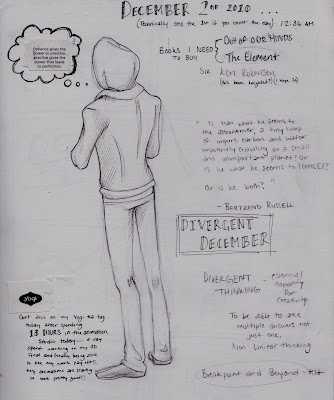 DECEMBER 2ND 2010 ...
(Technically still the 1st if you count the day) 12:36 AM
Patience gives the
power to practice;
practice gives the
power that leads
to perfection.
BOOKS I NEED
TO BUY
OUT OF OUR MINDS
THE ELEMENT
SIR KEN ROBINSON
" IS MAN what he seems to
the astronomer, a tiny lump
of impure carbon and water
impotently crawling on a small
and unimportant planet? Or
is he what he seems to HAMLET?
Or is he both? "
- BERTRAND RUSSELL
DIVERGENT
DECEMBER
yogi
Got this on my Yogi tea tag
today after spending
13 HOURS in the animation
Studio today... a day
spent working on my 2D
final and finally being able
to see my work pay off!
my animations are starting
to look pretty good!!
DIVERGENT
THINKING
- essential
capacity
for
creativity
To be able to see
multiple answers not
just one.
Non-Linear thinking
Breakpoint and Beyond - test